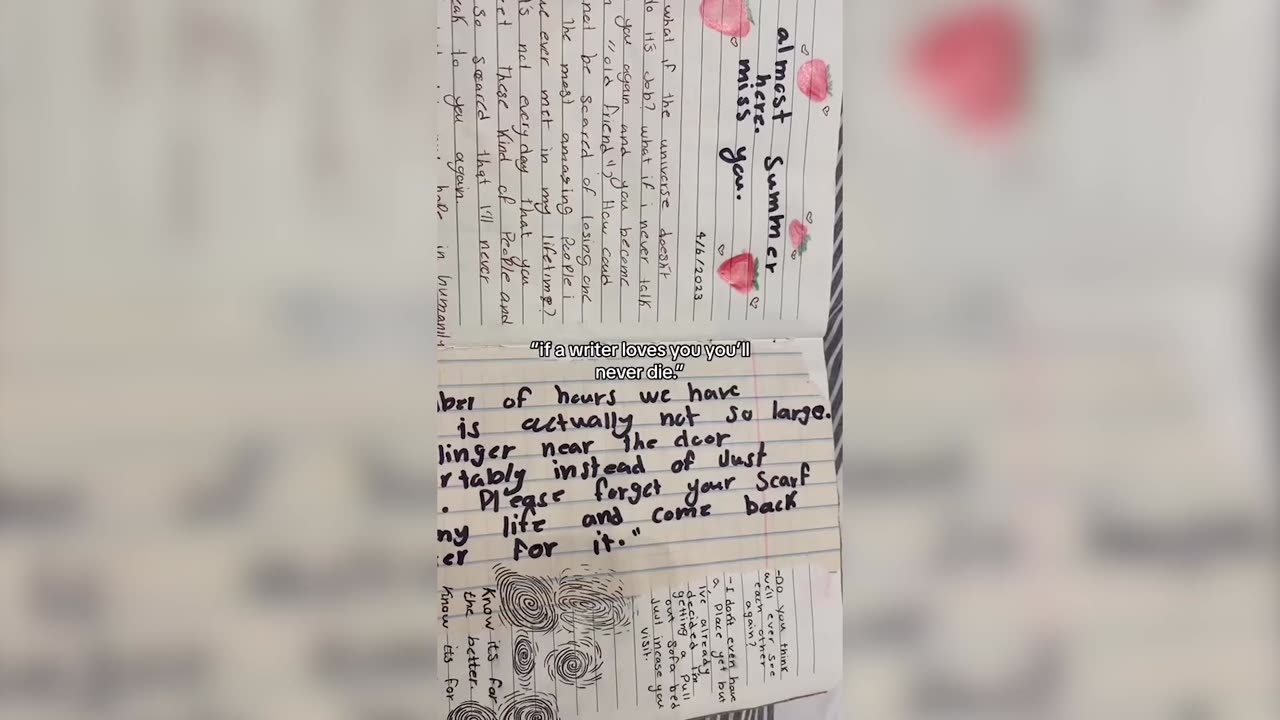 almost summer
here.
miss you.
4/6/2023
what if the universe doesn't
do it's job? what if i never talk
you again and you become
"old friend"? How could
not be scared of losing one
the most amazing people i
ever met in my lifetime?
's not everyday that you
these kind of people and
so scared that i'll never
to you again.
in humanity
"if a writer loves you you'll
never die."
of hours we have
is actually not so large.
linger near the door
instead of Just
. Please forget your scarf
life and come back
for it."
-Do you think
we'll ever see
each other
again?
-I don't even have
a place yet but
i've already
decided i'm
getting a pull
out sofa bed
Just incase you
visit.
Know its for
the better
Know its for